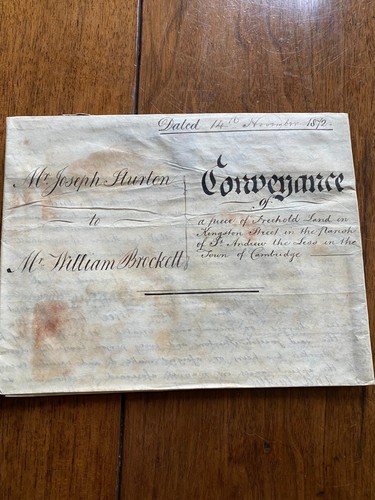 Dated 14th November 1872.
Mr. Joseph Sturton
to
Mr. William Brockett
Conveyance
of
a piece of Freehold Land in
Kingston Street in the parish
of St. Andrew the Less in the
Town of Cambridge